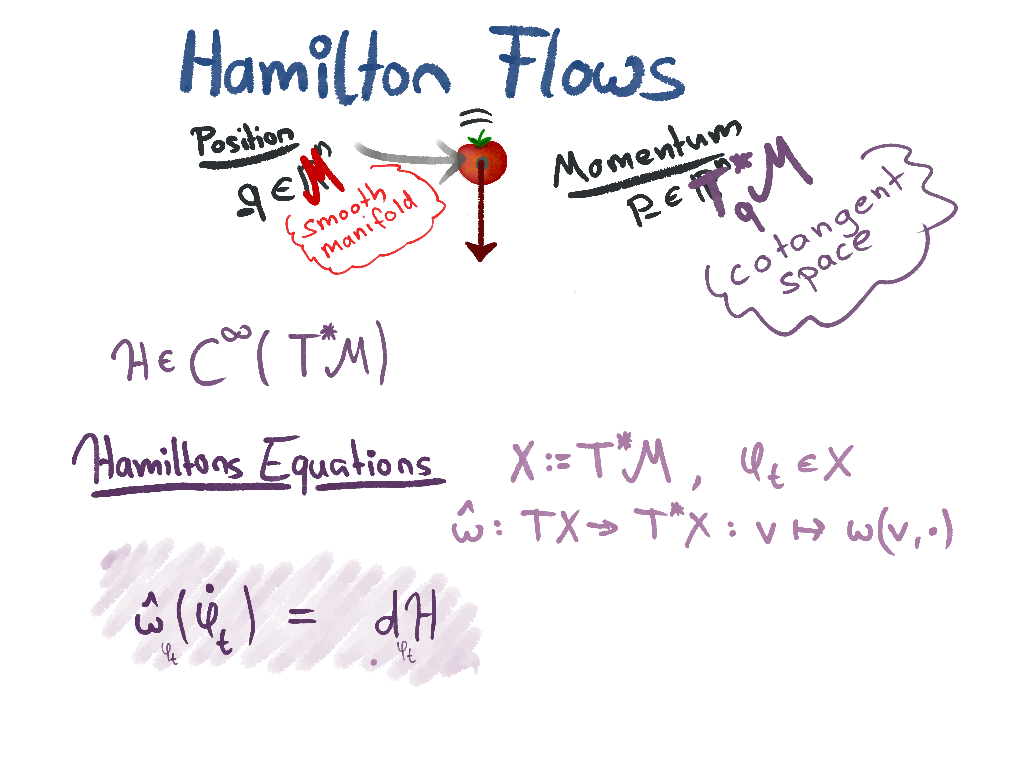 Hamilton Flows
Position
q ∈ M
smooth
manifold
Momentum
p ∈ T*_q M
cotangent
space
H ∈ C^∞(T*M)
Hamiltons Equations
X := T*M, φ_t ∈ X
ω̂ : TX → T*X : v ↦ ω(v, ·)
ω̂_φ_t(φ̇_t) = dH_φ_t